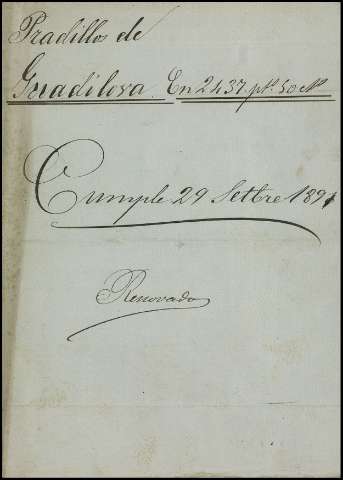 Pradillos de
Guadilova. En 2437 pts. 50 cts
Cumple 29 Setbre 1891
Renovado